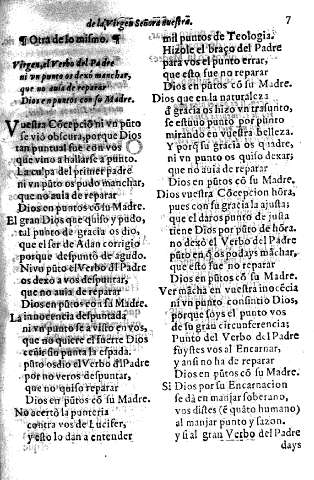 de la Virgen Señora nuestra.
7
¶ Otra de lo mismo. ¶
Virgen, el Verbo del Padre
ni vn punto os dexò manchar,
que no auia de reparar
Dios en puntos con su Madre.
Vuestra Cõcepcio ni vn pũto
se viò obscura, porque Dios
tan puntual fue con vos
que vino a hallarse a punto.
La culpa del primer padre
ni vn pũto os pudo manchar,
que no auia de reparar
Dios en puntos cõ su Madre.
El gran Dios que quiso y pudo,
tal punto de gracia os dio,
que el ser de Adan corrigio
porque despuntò de agudo.
Ni vn pũto el Verbo dl Padre
os dexò a vos despuntar,
que no auia de reparar
Dios en pũtos cõ su Madre.
La innocencia despuntada
ni vn punto se a visto en vos,
que no quiere el fuerte Dios
ceñir sin punta la espada.
pũto os dio el Verbo dl Padre
por no veros despuntar,
que no quiso reparar
Dios en pũtos cõ su Madre.
No acertò la punteria
contra vos de Lucifer,
y esto lo dan a entender
mil puntos de Teologia.
Hizole el braço del Padre
para vos el punto errar,
que esto fue no reparar
Dios en pũtos cõ su Madre.
Dios que en la naturaleza
d gracia os hizo vn trasunto,
se estuuo punto por punto
mirando en vuestra belleza.
Y porq̃ su gracia os quadre,
ni vn punto os quiso dexar;
que no auia de reparar
Dios en pũtos cõ su Madre.
Dios vuestra Cõcepcion hõra,
pues con su gracia la ajusta;
que el daros punto de justa
tiene Dios por pũto de hõra.
no dexò el Verbo del Padre
pũto en q̃ os podays mãchar,
que esto fue no reparar
Dios en pũtos cõ su Madre.
Ver mãcha en vuestra inocẽcia
ni vn punto consintio Dios,
porque soys el punto vos
de su gran circunferencia;
Punto del Verbo del Padre
fuystes vos al Encarnar,
y ansi no ha de reparar
Dios en pũtos cõ su Madre.
Si Dios por su Encarnacion
se dà en manjar soberano,
vos distes (ẽ quãto humano)
al manjar punto y sazon.
y si al gran Verbo del Padre
days